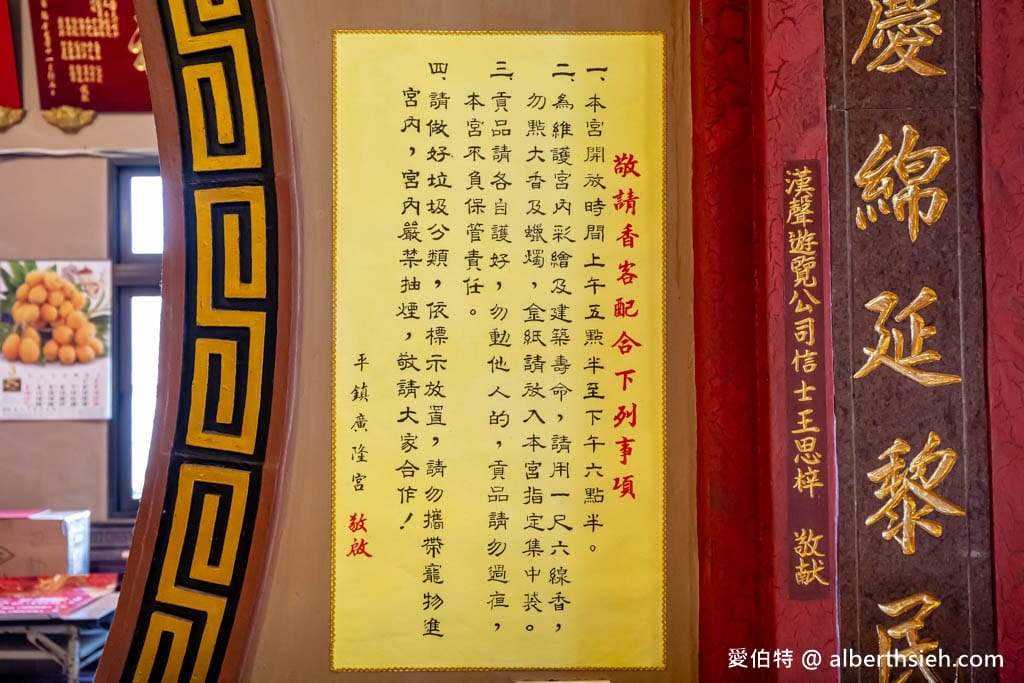 慶綿延黎民
漢聲遊覽公司信士王思梓 敬献
敬請香客配合下列事項
一、本宮開放時間上午五點半至下午六點半。
二、為維護宮內彩繪及建築壽命，請用一尺六線香，
勿點大香及蠟燭，金紙請放入本宮指定集中袋。
三、貢品請各自護好，勿動他人的，貢品請勿過夜，
本宮不負保管責任。
四、請做好垃圾分類，依標示放置，請勿攜帶寵物進
宮內，宮內嚴禁抽煙，敬請大家合作！
平鎮廣隆宮 敬啟
愛伯特 @ alberthsieh.com